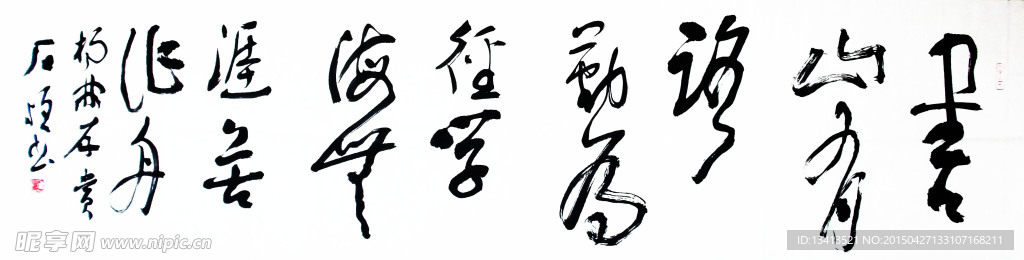 書
山有
路
勤為
徑學
海無
涯苦
作舟
石恒書
昵享网 www.nipic.cn
ID:13413521 NO:20150427133107168211